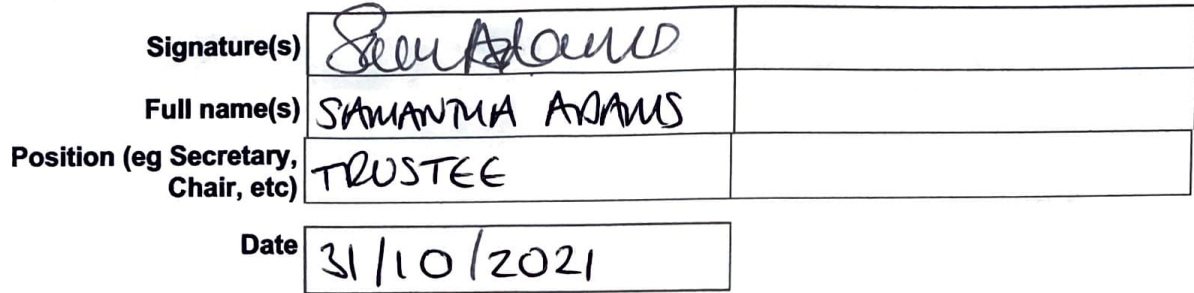 Signature(s) Sam Adams
Full name(s) SAMANTHA ADAMS
Position (eg Secretary,
Chair, etc) TRUSTEE
Date 31/10/2021